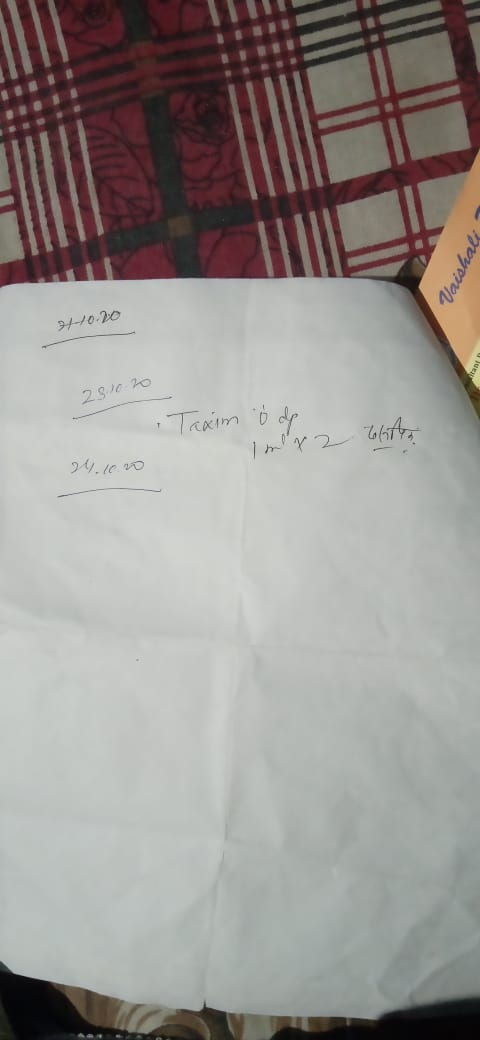 21.10.20
23.10.20
. Taxim O dp
1 ml x 2
24.10.20
Vaishali